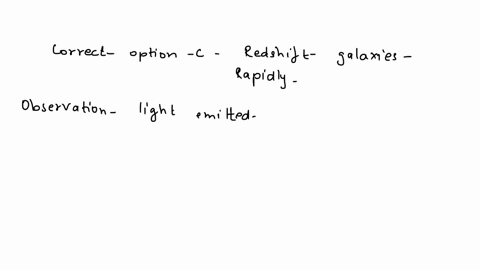 Correct- option -c - Redshift- galaxies -
Rapidly.
Observation- light emitted-